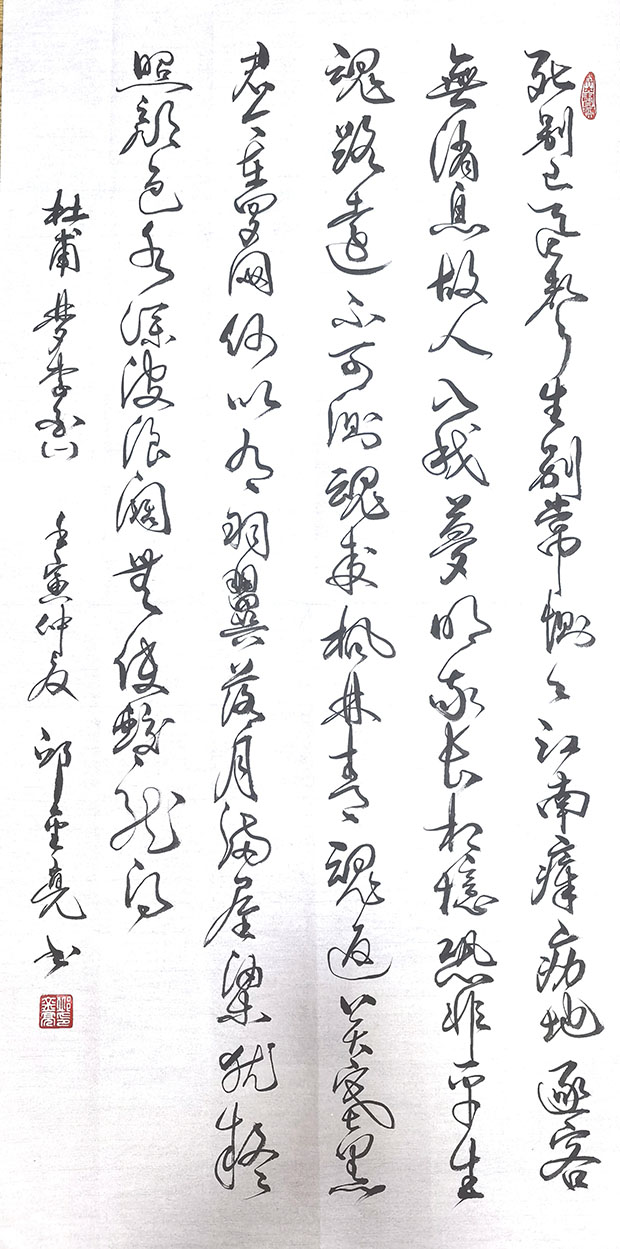 死别已吞聲生别常惻々江南瘴疠地逐客
無消息故人入我夢明我长相憶恐非平生
魂路遠不可測魂來楓林青魂返关塞黑
君今在羅網何以有羽翼落月滿屋梁犹疑
照顏色水深波浪阔無使蛟龍得
杜甫梦李白 壬寅仲夏 邱金亮书
邱印金亮